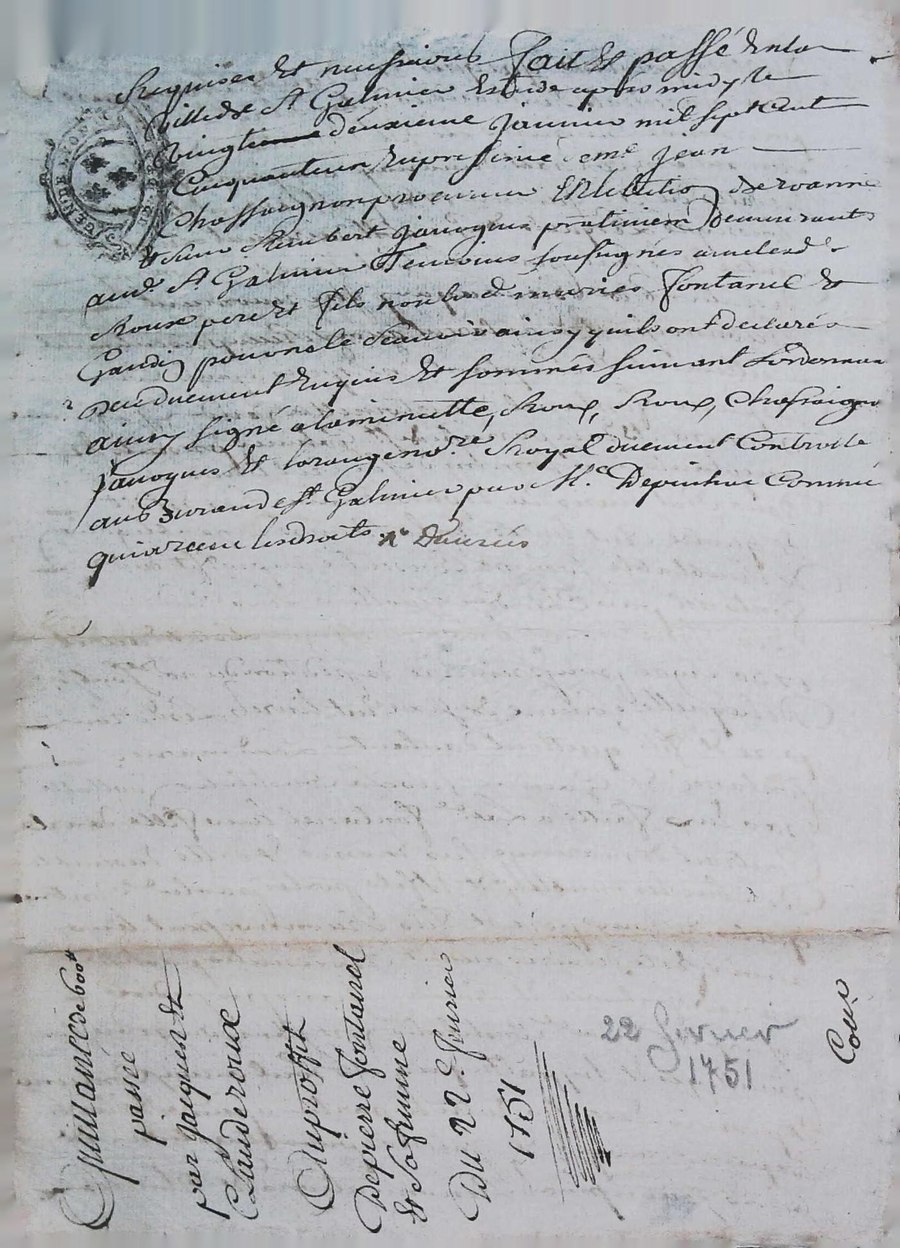 Requises et
fait et passé en la
ville de St Galmier Etude apres midy le
vingt deuxieme janvier mil sept cent
Cinquante un en presence de me jean
Chassaignon procureur En lelection de roanne
et sieur Rambert javogues praticien demeurants
aud. St Galmier Temoins soussignés avec lesd.
Roux pere et fils non led. maries fontanel et
Gaudin pour ne le scavoir ainsy quils ont declarés
de ce duement Enquis et sommés suivant Lordonnan
ainsy signé a la minutte, Roux, Roux, Chassaignon
javogues et notre Royal duement Controllé
au Bureau de St Galmier par Mr. Depinhac Commis
qui a receu les droits
Quittance de 600tt
passée
par jacques et
Claude roux
Au proffit
De pierre fontanel
et sa femme
Du 22e fevrier
1751
22 fevrier
1751